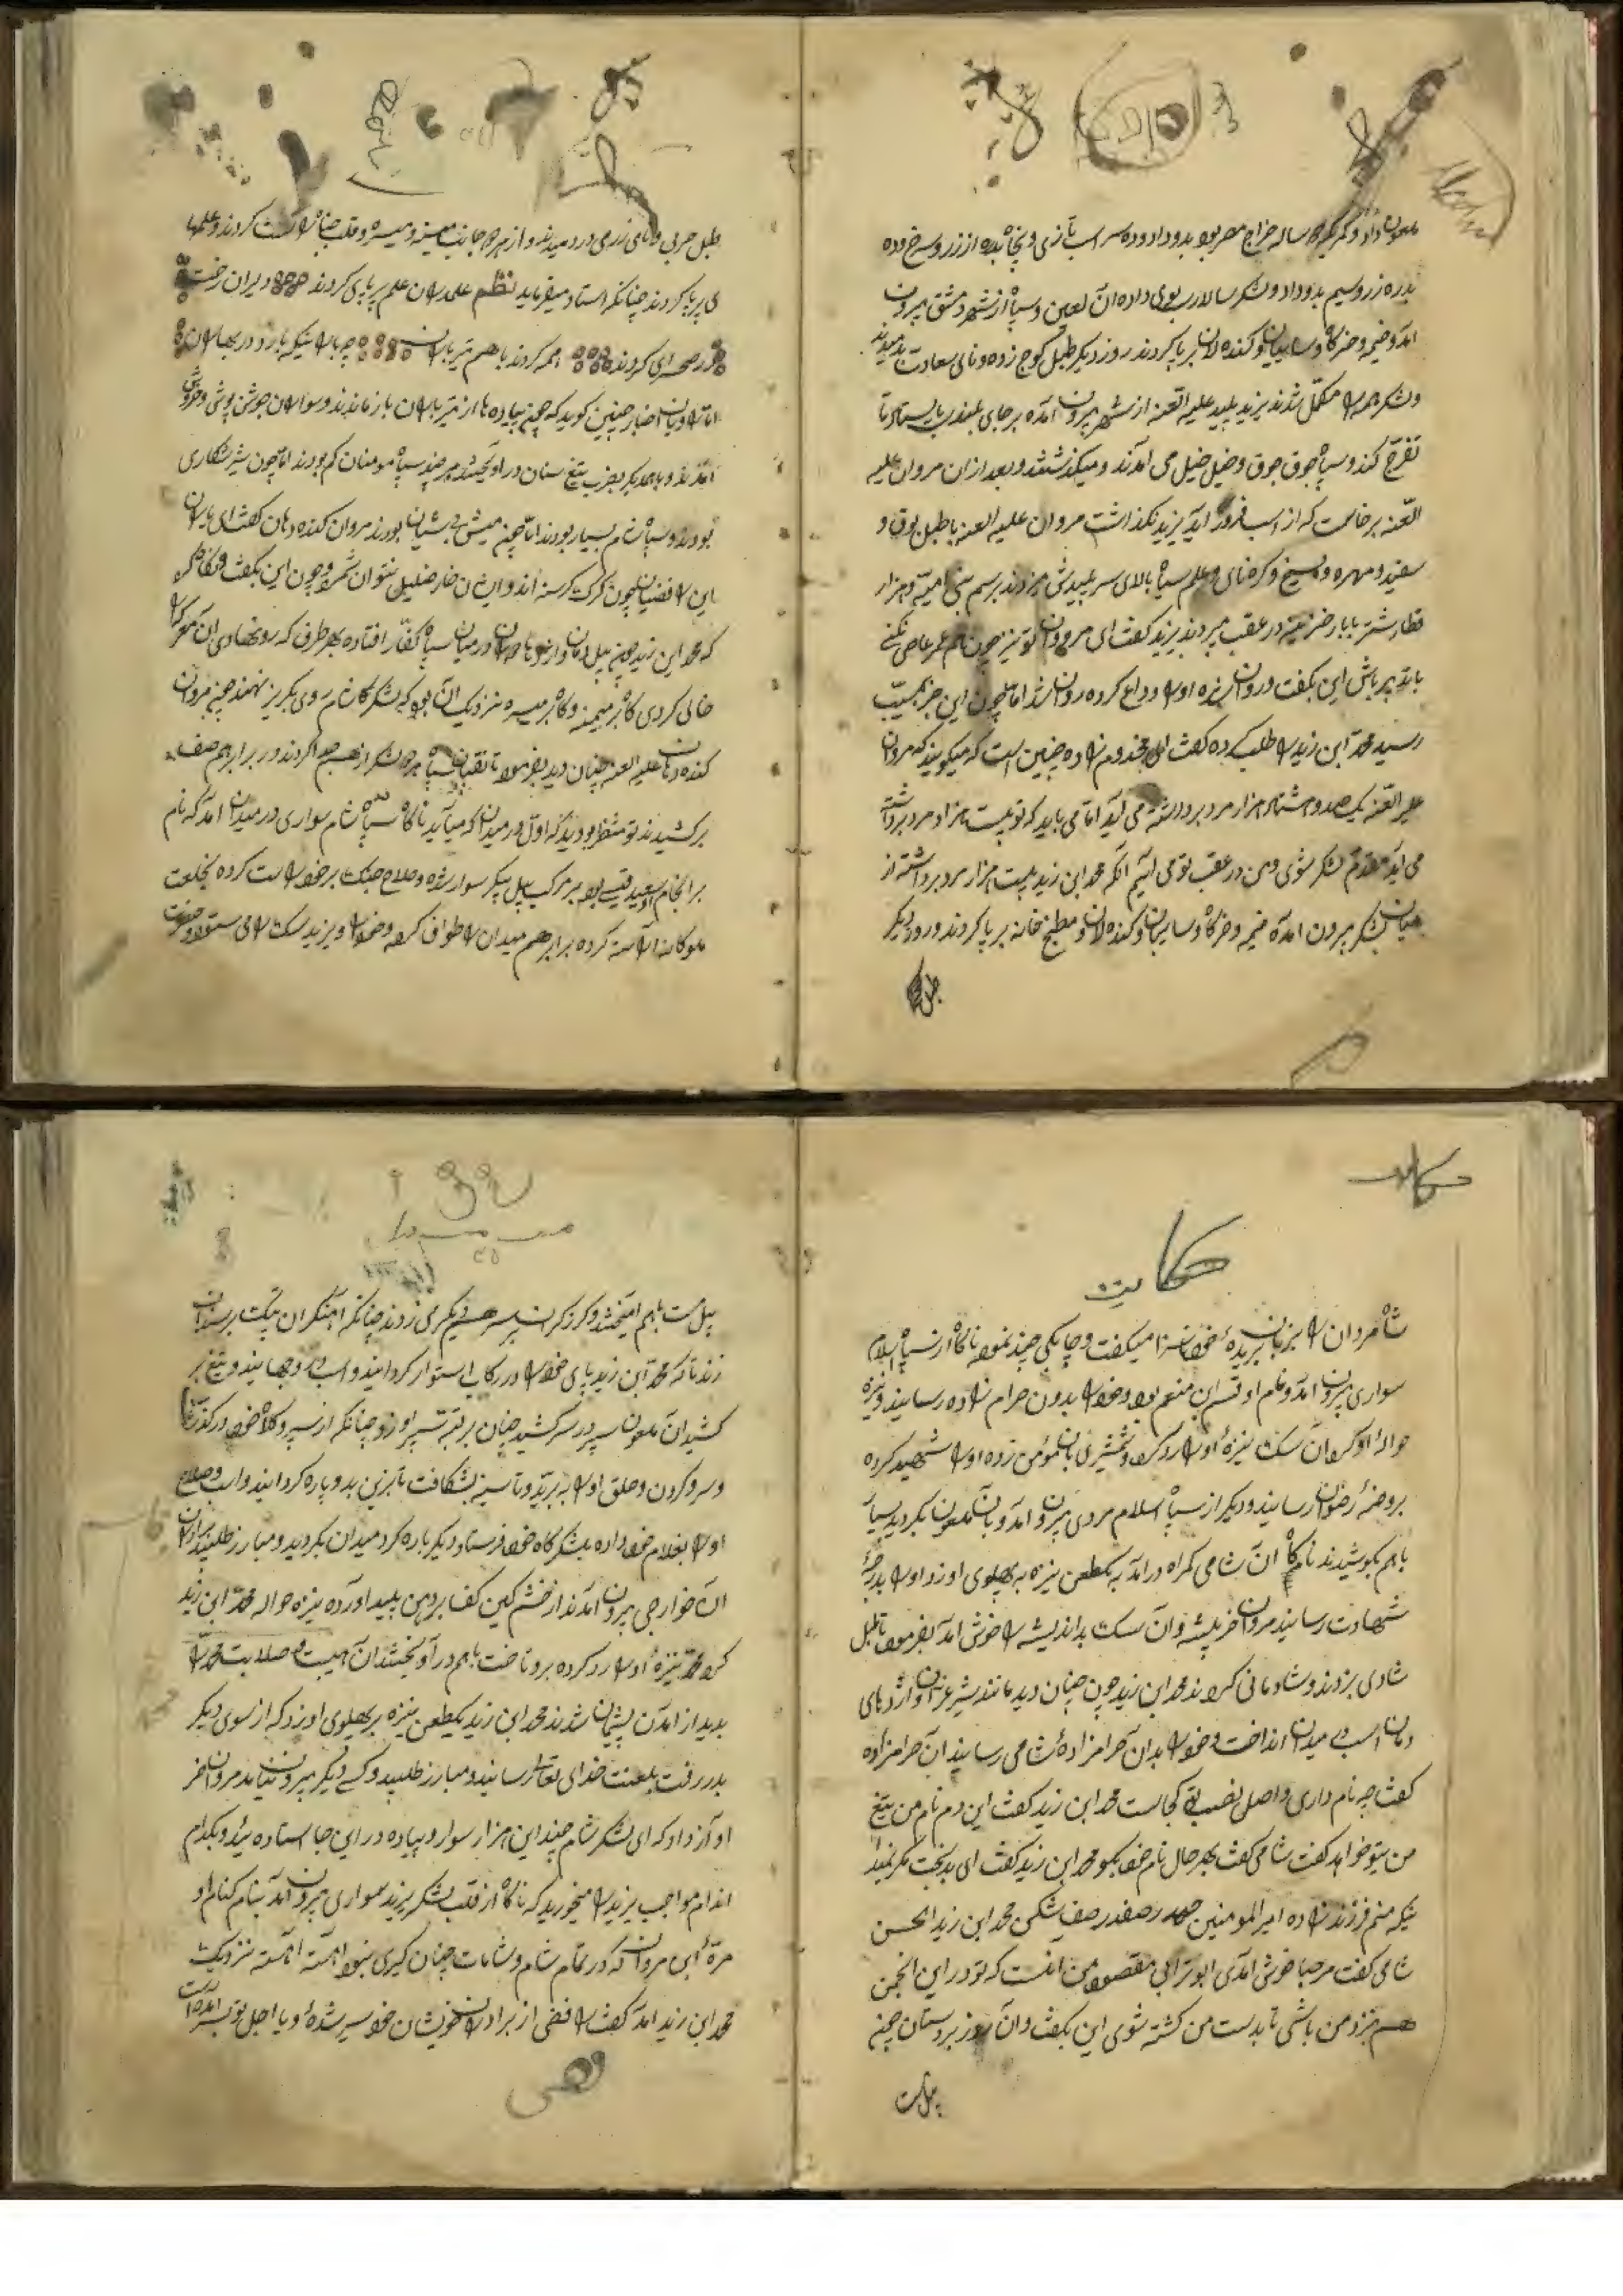 ملعون داد و کمر سه ساله خراج مصر بود بدو داد و ده سر اسب تازی و پنجاه بدره از زر سرخ و ده
بدره زر و سیم بدو داد و لشکر سالاری بوی داده آن لعین و سپاه از شهر دمشق بیرون
آمد و خیمه و خرگاه و سایبان و کنده لان بر پا کردند روز دیگر طبل کوچ زده و نای سعادت بدمیدند
و لشکر همه مکمل شدند یزید پلید علیه العنه از شهر بیرون آمده بر جای بلند بایستاد تا
تفرج کند و سپاه جوق جوق و خیل خیل می آمدند و میگذشتند و بعد از آن مروان علیه
العنه بر خاست که از اسب فرود آید یزید نگذاشت مروان علیه العنه با طبل بوق و
سفید مهره و سنج و کرنای و علم سیاه بالای سر پلیدش میزدند برسم بنی امیه و هزار
قطار شتر با بار خزینه در عقب میبردند یزید گفت ای مروان تو نیز چون عمر عاصی نکنی
باتدبیر باش این بگفت و روان شده او را وداع کرده روان شد اما چون این خبر بمسیب
رسید محمد ابن زید را طلب کرده گفت ای مخدوم زاده چنین است که میگویند که مروان
علیه العنه یکصد و هشتاد هزار مرد برداشته می آید اما می باید که تو بیست هزار مرد برداشته
می آید مقدم لشکر شوی و من در عقب تو می آئیم آنگه محمد ابن زید بیست هزار مرد برداشته از
میان لشکر بیرون آمده خیمه و خرگاه و سایبان و کنده لان و مطبخ خانه بر پا کردند و روز دیگر
طبل
طبل حربی و نای زرمی در دمیدند و از هر دو جانب میمنه و میسره و قلب جناح راست کردند و علمها
ی بر پا کردند چنانکه استاد میفرماید نظم علمداران علم بر پای کردند دلیران رخت
در صحرای کردند همه کردند باهم تیر باران چه باران نیکه بارد در بهاران
اما راویان اخبار چنین گوید که چون پیاده ها از تیر باران باز ماندند و سواران جوشن پوش و خروش
آمدند و با همدیگر بضرب تیغ سنان در آویختند هر چند سپاه مومنان کم بودند اما چون شیر شکاری
بودند و سپاه شام بسیار بودند اما چون میش بی شبان بودند مروان کنده دهان گفت ای یاران
این رافضیان چون گرگ گرسنه اند و ایشان خار خلیلی نتوان شمرد چون این بگفت و نگاه کرد
که محمد ابن زید چون پیل دمان و اژدهای دمان در میان سپاه کفار افتاده بهر طرف که رو نهادی آن معرکه را
خالی کردی گاه بر میمنه و گاه بر میسره نزدیک آن بود که لشکرگان شام روی بگریز نهند چون مروان
کنده دهان علیه العنه چنان دید بفرمود تا نقیبان سپاه هر دو لشکر از هم جدا کردند در برابر هم صف
بر کشیدند تو منتظر بودند که اول در میدان که میآید ناگاه از سپاه شام سواری در میدان آمد که نام
بد انجام او سعید قیس بود بر مرکب پیل پیکر سوار شده و سلاح جنگ بر خود راست کرده بخلعت
ملوکانه آراسته کرده برابر هم میدان را طواف کرد و خود را و یزید سگ را می ستود و حضرت
حکایت
حکایت
شاه مردان را بر زبان بریده خود ناسزا میگفت و چابکی چند نمود ناگاه از سپاه اسلام
سواری بیرون آمد و نام او قیس ابن منعم بود و خود را بدون حرام زاده رسانید و نیزه
حواله او کرد آن سگ نیزه او را رد کرد و شمشیری بان مؤمن زده او را شهید کرده
بروضه رضوان رسانید و دیگر از سپاه اسلام مردی بیرون آمد و بان ملعون بگردید بسیار
باهم بکوشیدند ناگاه آن شامی گمراه در آمد یکطعن نیزه به پهلوی او زد او را بدرجه
شهادت رسانید مروان خر پیشه و آن سگ بد اندیشه را خوش آمد بفرمود تا طبل
شادی بزدند و شادمانی کردند محمد ابن زید چون چنان دید مانند شیر غران و اژدهای
دمان اسب در میدان انداخت و خود را بدان حرامزاده شامی رسانید آن حرامزاده
گفت چه نام داری و اصل نصب تو کجاست محمد ابن زید گفت این دم نام من تیغ
من بتو خواهد گفت شامی گفت بهر حال نام خود بگو محمد ابن زید گفت ای بدبخت مگر نمیدا
نیکه منم فرزند زاده امیر المومنین حیدر صفدر صف شکن محمد ابن زید الحسن
شامی گفت مرحبا خوش آمدی ابوترابی مقصود من آنست که تو در این انجمن
هم نبرد من باشی تا بدست من کشته شوی این بگفت و آن روز بر دستان چون
پیل مست
پیل مست باهم آمیختند و گرز گران بر سر همدیگر می زدند چنانکه آهنگران پتک بر سندان
زند تا که محمد ابن زید پای خود را در رکاب استوار گردانید و اسب در جهانید و تیغ بر
کشید آن ملعون سپر در سر کشید چنان بر قبه سپر او زد چنانکه از سپر و کلاه خود در گذشت
و سر و گردن و حلق او را بدرید و تا سینه بشکافت تا بزین بدو پاره گردانید و اسب و سلاح
او را بغلام خود داده بلشکرگاه خود فرستاد دیگر باره گرد میدان بگردید و مبارز طلبید برادران
آن خوارجی بیرون آمدند از خشم کین کف بر دهن پلید آورده نیزه حواله محمد ابن زید
کرد محمد نیزه او را رد کرده برو تاخت باهم در آویختند آن هیبت و صلابت محمد را
بدید از آمدن پشیمان شدند محمد ابن زید یکطعن نیزه بر پهلوی او زد که از سوی دیگر
بدر رفت بلعنت خدای تعالی رسانید و مبارز طلبید و کسی دیگر بیرون نیامد مروان خر
او آز داد که ای لشکر شام چندین هزار سوار و پیاده در این جا استاده اید و بکدام
اندام مواجب یزید را میخورید که ناگاه از قلب لشکر یزید سواری بیرون آمد بنام کنام او
مرة ابن مروان که در تمام شام و شامات چنان گبری نبود آهسته آهسته نزدیک
محمد ابن زید آمد گفت رافضی از برادران خویشان خود سیر شده و یا اجل تو بسر آمده است